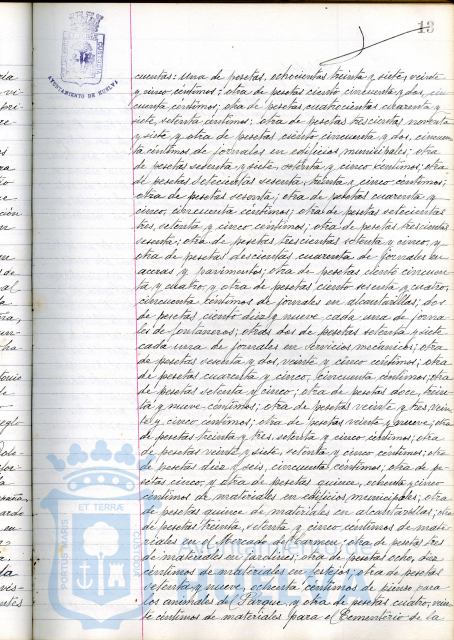 13
AYUNTAMIENTO DE HUELVA
cuentas: una de pesetas, ochocientas treinta y siete, veinte
y cinco céntimos; otra de pesetas ciento cincuenta y dos, cin
cuenta céntimos; otra de pesetas, cuatrocientas cuarenta y
siete, setenta céntimos; otra de pesetas trescientas noventa
y siete y otra de pesetas ciento cincuenta y dos, cincuen
ta céntimos de jornales en edificios municipales; otra
de pesetas sesenta y siete, setenta y cinco céntimos; otra
de pesetas setecientas sesenta, treinta y cinco céntimos;
otra de pesetas sesenta; otra de pesetas cuarenta y
cinco, cincuenta céntimos; otra de pesetas setecientas
tres, setenta y cinco céntimos; otra de pesetas trescientas
sesenta; otra de pesetas trescientas setenta y cinco, y
otra de pesetas doscientas cuarenta de jornales en
aceras y pavimentos; otra de pesetas ciento cincuen
ta y cuatro, y otra de pesetas ciento sesenta y cuatro,
cincuenta céntimos de jornales en alcantarillas; dos
de pesetas ciento diez y nueve cada una de jorna
les de fontaneros; otras dos de pesetas setenta y siete
cada una de jornales en servicios mecánicos; otra
de pesetas sesenta y dos, veinte y cinco céntimos; otra
de pesetas cuarenta y cinco, cincuenta céntimos; otra
de pesetas setenta y cinco; otra de pesetas doce, trein
ta y nueve céntimos; otra de pesetas veinte y tres, vein
te y cinco céntimos; otra de pesetas veinte y nueve; otra
de pesetas treinta y tres, setenta y cinco céntimos; otra
de pesetas veinte y siete, setenta y cinco céntimos; otra
de pesetas diez y seis, cincuenta céntimos; otra de pe
setas cinco, y otra de pesetas quince, ochenta y cinco
céntimos de materiales en edificios municipales; otra
de pesetas quince de materiales en alcantarillas; otra
de pesetas treinta, setenta y cinco céntimos de mate
riales en el Mercado del Carmen; otra de pesetas tres
de materiales en jardines; otra de pesetas ocho, diez
céntimos de materiales en festejos; otra de pesetas
setenta y nueve, ochenta céntimos de pienso para
los animales del Parque, y otra de pesetas cuatro, vein
te céntimos de materiales para el Cementerio de la